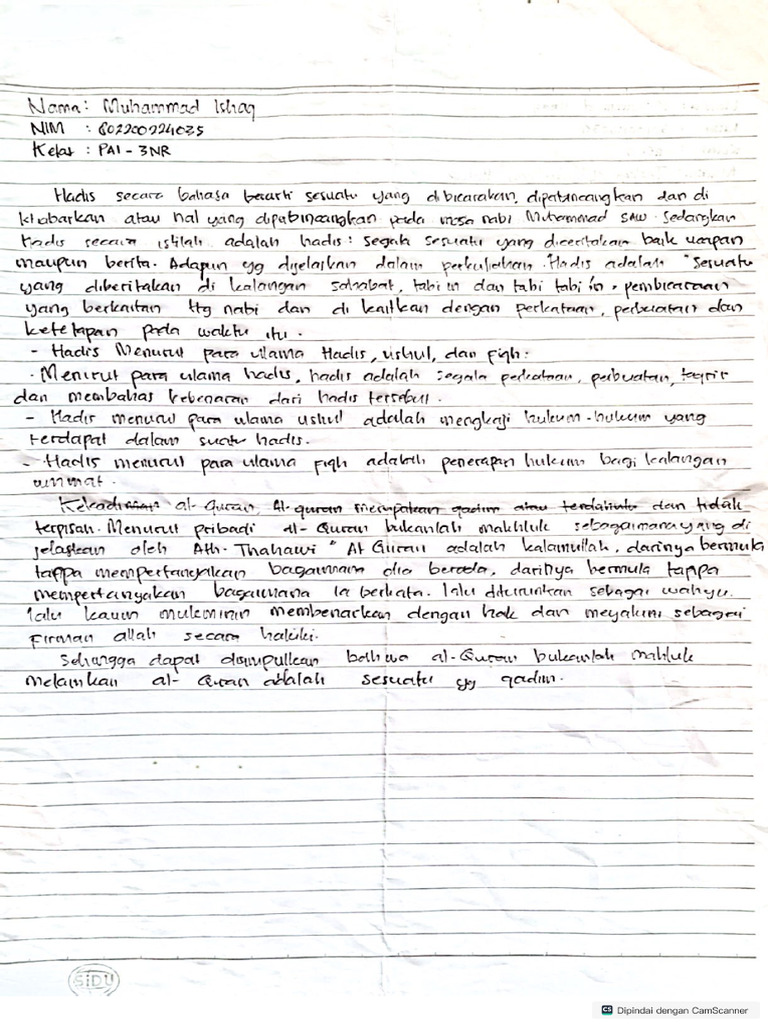 Nama: Muhammad Ishaq
NIM : 602200224035
Kelas : PAI - 3NR
Hadis secara bahasa berarti sesuatu yang dibicarakan, diperbincangkan dan di
khabarkan atau hal yang diperbincangkan pada masa nabi Muhammad SAW. Sedangkan
hadis secara istilah adalah hadis: segala sesuatu yang diceritakan baik ucapan
maupun berita. Adapun yg dijelaskan dalam perkuliahan. Hadis adalah "Sesuatu
yang diberitakan di kalangan sahabat, tabi in dan tabi tabi in. pembicaraan
yang berkaitan ttg nabi dan di kaitkan dengan perkataan, perbuatan dan
ketetapan pada waktu itu.
- Hadis Menurut para ulama Hadis, ushul, dan Fiqh:
. Menurut para ulama hadis, hadis adalah segala perkataan, perbuatan, taqrir
dan membahas kebenaran dari hadis tersebut.
- Hadis menurut para ulama ushul adalah mengkaji hukum-hukum yang
terdapat dalam suatu hadis.
- Hadis menurut para ulama fiqh adalah penerapan hukum bagi kalangan
ummat.
al-Quran, Al-quran merupakan qadim atau terdahulu dan tidak
terpisah. Menurut pribadi al-Quran bukanlah makhluk sebagaimana yang di
jelaskan oleh Ath-Thahawi "Al Quran adalah kalamullah, darinya bermula
tanpa mempertanyakan bagaimana dia berada, darinya bermula tanpa
mempertanyakan bagaimana Ia berkata. lalu diturunkan sebagai wahyu.
lalu kaum mukminin membenarkan dengan hak dan meyakini sebagai
Firman allah secara hakiki.
Sehingga dapat disimpulkan bahwa al-Quran bukanlah mahluk
melainkan al-Quran adalah sesuatu yg qadim.
SiDU
CS Dipindai dengan CamScanner